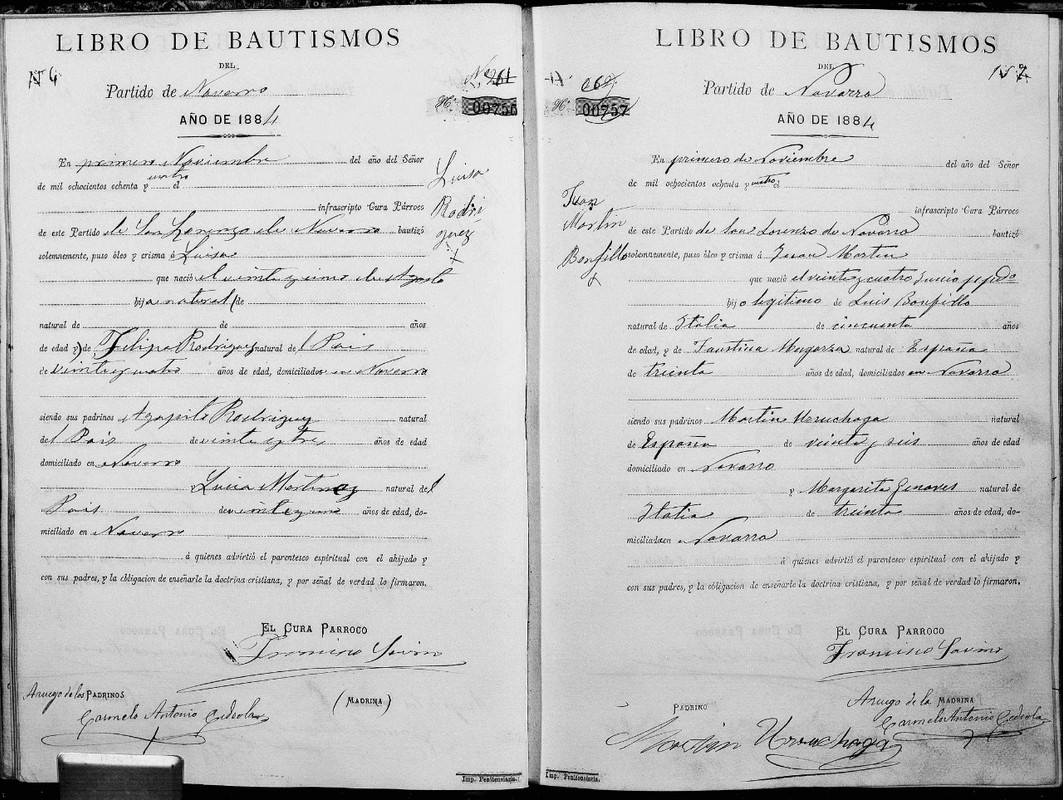 LIBRO DE BAUTISMOS
DEL
Nº 6
Partido de Navarro
Nº 261
00756
AÑO DE 1884
En primero Noviembre del año del Señor
de mil ochocientos ochenta y cuatro el
infrascripto Cura Párroco
de este Partido de San Lorenzo de Navarro bautizó
solemnemente, puso óleo y crisma á Luisa
que nació el veinte y uno de Agosto
hija natural (de
natural de de años
de edad y) de Felipa Rodriguez natural del Pais
de veinte y cuatro años de edad, domiciliados en Navarro
siendo sus padrinos Agapito Rodriguez natural
del Pais de veinte y tres años de edad
domiciliado en Navarro
Lucia Martinez natural del
Pais de veinte y uno años de edad, do-
miciliado en Navarro
á quienes advirtió el parentesco espiritual con el ahijado y
con sus padres, y la obligacion de enseñarle la doctrina cristiana, y por señal de verdad lo firmaron.
Luisa
Rodri
guez
EL CURA PARROCO
Francisco Savino
Aruego de los PADRINOS
(MADRINA)
Carmelo Antonio Cedeola
Imp. Penitenciaria.
LIBRO DE BAUTISMOS
DEL
262
Partido de Navarro
00757
AÑO DE 1884
En primero de Noviembre del año del Señor
de mil ochocientos ochenta y cuatro el
infrascripto Cura Párroco
de este Partido de San Lorenzo de Navarro bautizó
solemnemente, puso óleo y crisma á Juan Martin
que nació el veinte y cuatro Junio ppdo
hijo legitimo de Luis Bonfillo
natural de Italia de cincuenta años
de edad, y de Faustina Mugarza natural de España
de treinta años de edad, domiciliados en Navarro
siendo sus padrinos Martin Urruchaga natural
de España de veinte y seis años de edad
domiciliado en Navarro
y Margarita Genoves natural de
Italia de treinta años de edad, do-
miciliados en Navarro
á quienes advirtió el parentesco espiritual con el ahijado y
con sus padres, y la obligacion de enseñarle la doctrina cristiana, y por señal de verdad lo firmaron.
Juan
Martin
Bonfillo
EL CURA PARROCO
Francisco Savino
PADRINO
Aruego de la MADRINA
Carmelo Antonio Cedeola
Martin Urruchaga
Imp. Penitenciaria.